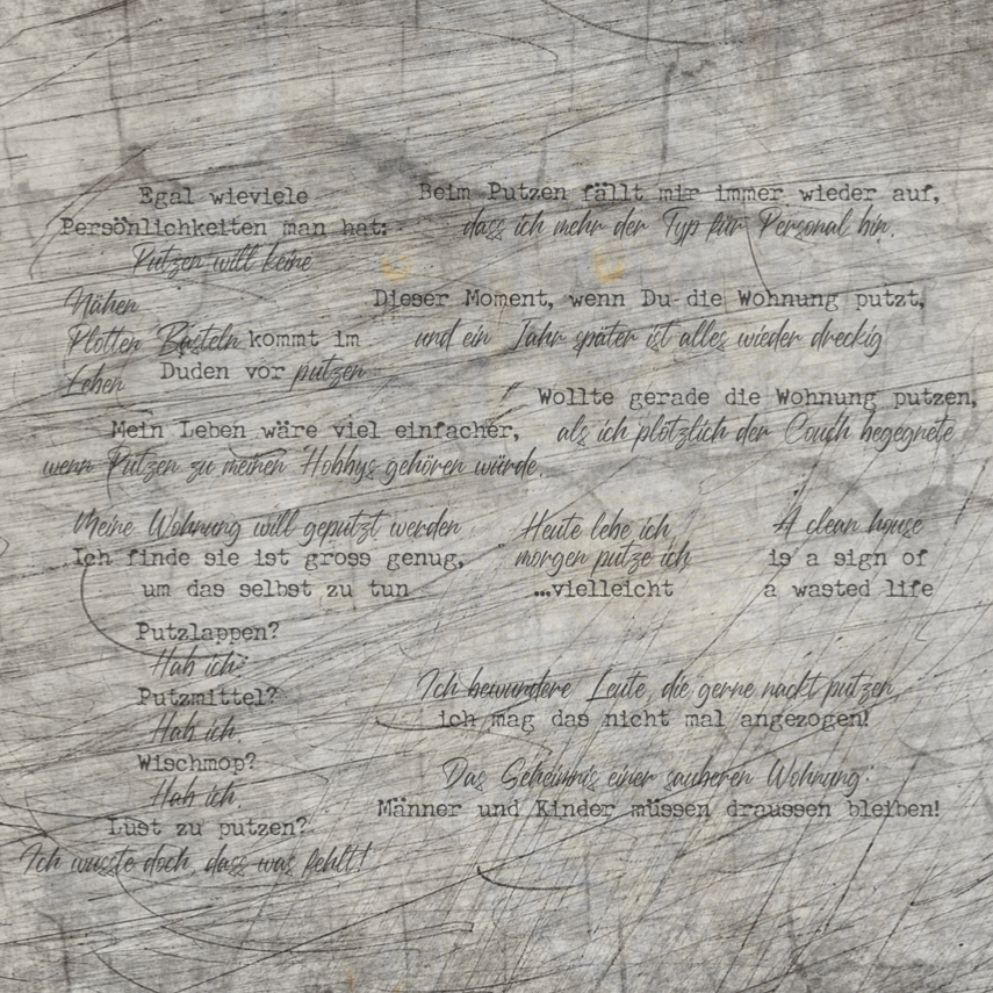 Egal wieviele
Persönlichkeiten man hat:
Putzen will keine
Beim Putzen fällt mir immer wieder auf,
dass ich mehr der Typ für Personal bin.
Nähen
Plotten
Leben
Basteln kommt im
Duden vor putzen
Dieser Moment, wenn Du die Wohnung putzt,
und ein Jahr später ist alles wieder dreckig
Wollte gerade die Wohnung putzen,
als ich plötzlich der Couch begegnete
Mein Leben wäre viel einfacher,
wenn Putzen zu meinen Hobbys gehören würde.
Meine Wohnung will geputzt werden
Ich finde sie ist gross genug,
um das selbst zu tun
Heute lebe ich,
morgen putze ich
...vielleicht
A clean house
is a sign of
a wasted life
Putzlappen?
Hab ich.
Putzmittel?
Hab ich.
Wischmop?
Hab ich.
Lust zu putzen?
Ich wusste doch, dass was fehlt!
Ich bewundere Leute, die gerne nackt putzen,
ich mag das nicht mal angezogen!
Das Geheimnis einer sauberen Wohnung:
Männer und Kinder müssen draussen bleiben!